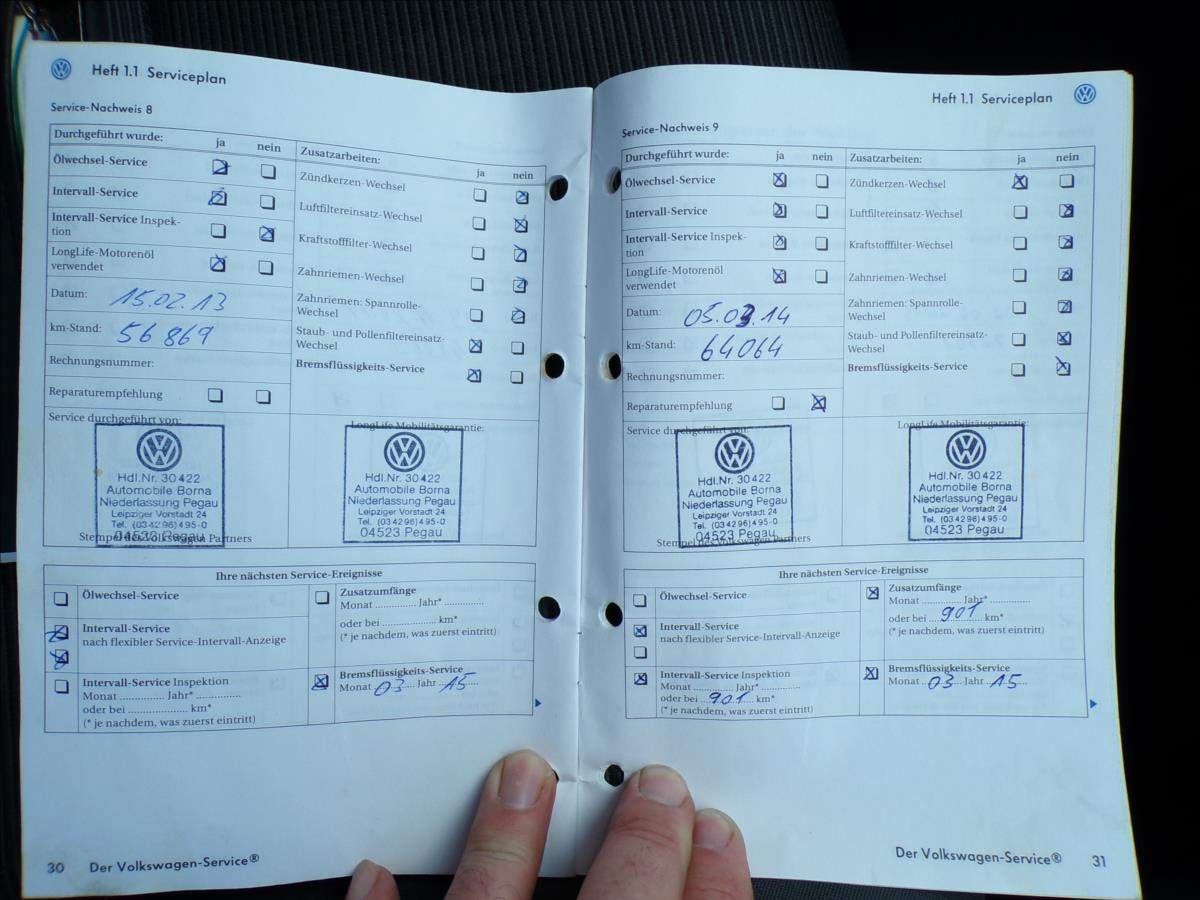 Heft 1.1 Serviceplan
Service-Nachweis 8
Durchgeführt wurde: ja nein
Ölwechsel-Service
Intervall-Service
Intervall-Service Inspek-
tion
LongLife-Motorenöl
verwendet
Datum: 15.02.13
km-Stand: 56 869
Rechnungsnummer:
Reparaturempfehlung
Zusatzarbeiten: ja nein
Zündkerzen-Wechsel
Luftfiltereinsatz-Wechsel
Kraftstofffilter-Wechsel
Zahnriemen-Wechsel
Zahnriemen: Spannrolle-
Wechsel
Staub- und Pollenfiltereinsatz-
Wechsel
Bremsflüssigkeits-Service
Service durchgeführt von:
Hdl.Nr. 30 422
Automobile Borna
Niederlassung Pegau
Leipziger Vorstadt 24
Tel. (03 42 96) 4 95-0
04523 Pegau
Stempel des Volkswagen Partners
LongLife Mobilitätsgarantie:
Hdl.Nr. 30 422
Automobile Borna
Niederlassung Pegau
Leipziger Vorstadt 24
Tel. (03 42 96) 4 95-0
04523 Pegau
Ihre nächsten Service-Ereignisse
Ölwechsel-Service
Intervall-Service
nach flexibler Service-Intervall-Anzeige
Intervall-Service Inspektion
Monat ............... Jahr* ...............
oder bei .................... km*
(* je nachdem, was zuerst eintritt)
Zusatzumfänge
Monat .............. Jahr* ..............
oder bei .................... km*
(* je nachdem, was zuerst eintritt)
Bremsflüssigkeits-Service
Monat 03 Jahr 15
30 Der Volkswagen-Service®
Heft 1.1 Serviceplan
Service-Nachweis 9
Durchgeführt wurde: ja nein
Ölwechsel-Service
Intervall-Service
Intervall-Service Inspek-
tion
LongLife-Motorenöl
verwendet
Datum: 05.03.14
km-Stand: 64064
Rechnungsnummer:
Reparaturempfehlung
Zusatzarbeiten: ja nein
Zündkerzen-Wechsel
Luftfiltereinsatz-Wechsel
Kraftstofffilter-Wechsel
Zahnriemen-Wechsel
Zahnriemen: Spannrolle-
Wechsel
Staub- und Pollenfiltereinsatz-
Wechsel
Bremsflüssigkeits-Service
Service durchgeführt von:
Hdl.Nr. 30 422
Automobile Borna
Niederlassung Pegau
Leipziger Vorstadt 24
Tel. (03 42 96) 4 95-0
04523 Pegau
Stempel des Volkswagen Partners
LongLife Mobilitätsgarantie:
Hdl.Nr. 30 422
Automobile Borna
Niederlassung Pegau
Leipziger Vorstadt 24
Tel. (03 42 96) 4 95-0
04523 Pegau
Ihre nächsten Service-Ereignisse
Ölwechsel-Service
Intervall-Service
nach flexibler Service-Intervall-Anzeige
Intervall-Service Inspektion
Monat ............... Jahr* ...............
oder bei 901 km*
(* je nachdem, was zuerst eintritt)
Zusatzumfänge
Monat .............. Jahr* ..............
oder bei 901 km*
(* je nachdem, was zuerst eintritt)
Bremsflüssigkeits-Service
Monat 03 Jahr 15
Der Volkswagen-Service® 31